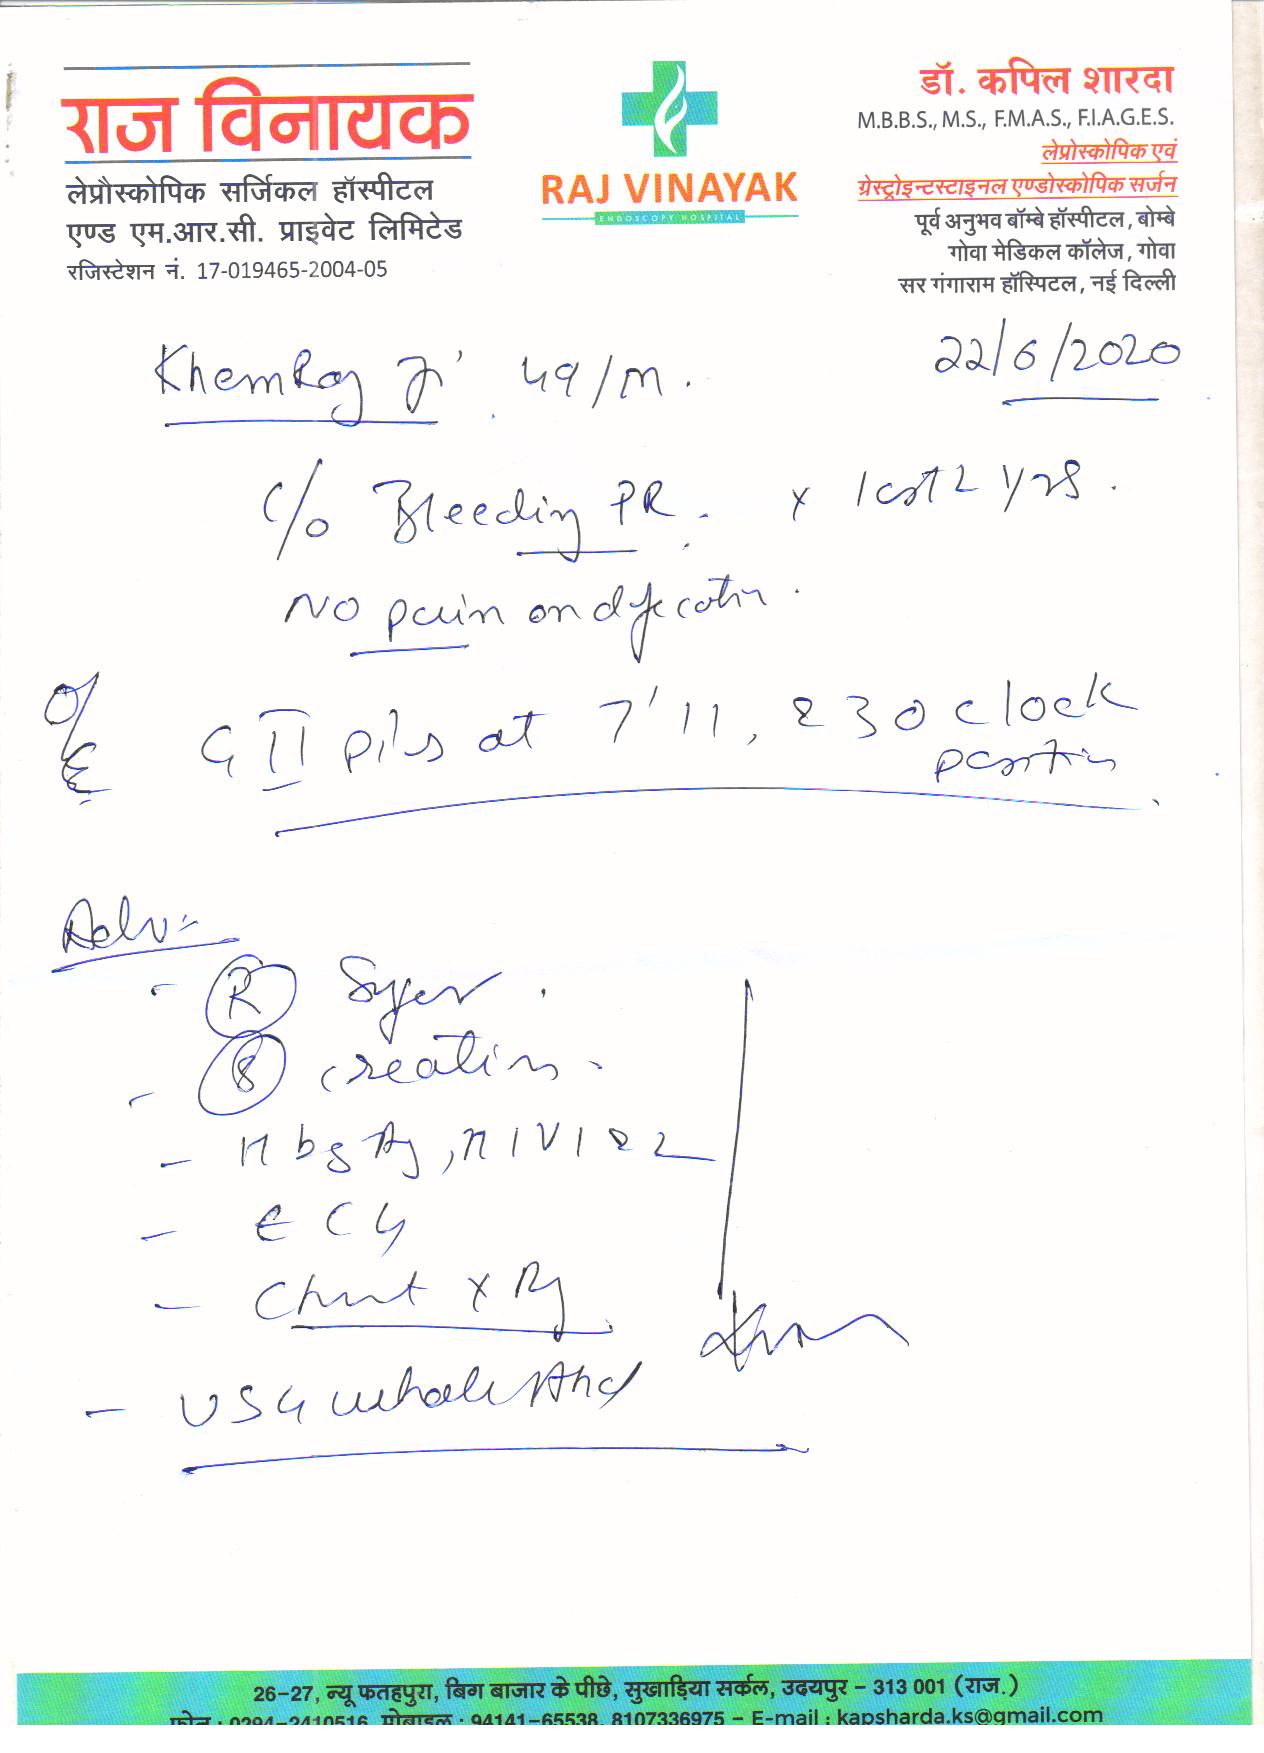 राज विनायक
लेप्रौस्कोपिक सर्जिकल हॉस्पीटल
एण्ड एम.आर.सी. प्राइवेट लिमिटेड
रजिस्टेशन नं. 17-019465-2004-05
RAJ VINAYAK
ENDOSCOPY HOSPITAL
डॉ. कपिल शारदा
M.B.B.S., M.S., F.M.A.S., F.I.A.G.E.S.
लेप्रोस्कोपिक एवं
ग्रेस्ट्रोइन्टस्टाइनल एण्डोस्कोपिक सर्जन
पूर्व अनुभव बॉम्बे हॉस्पीटल, बोम्बे
गोवा मेडिकल कॉलेज, गोवा
सर गंगाराम हॉस्पिटल, नई दिल्ली
22/6/2020
KhemRaj Ji 49/M.
C/o Bleeding PR. x last 2 yrs.
No pain on defecation.
O/E G II piles at 7, 11, & 3 o clock
position
Adv:-
- (R) Sugar.
- (S) creatinin.
- HbsAg, HIV 1 & 2
- ECG
- Chest x Ray
- USG whole Abd
26-27, न्यू फतहपुरा, बिग बाजार के पीछे, सुखाड़िया सर्कल, उदयपुर - 313 001 (राज.)
फोन : 0294-2410516, मोबाइल : 94141-65538, 8107336975 - E-mail : kapsharda.ks@gmail.com